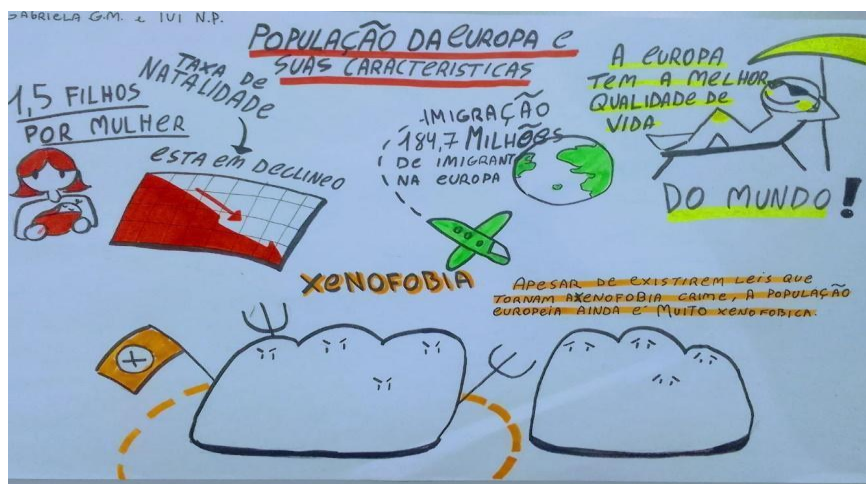 GABRIELA G.M. e IVI N.P.
POPULAÇÃO DA EUROPA E
SUAS CARACTERISTICAS
1,5 FILHOS
POR MULHER
TAXA DE
NATALIDADE
ESTA EM DECLINEO
IMIGRAÇÃO
184,7 MILHÕES
DE IMIGRANTES
NA EUROPA
A EUROPA
TEM A MELHOR
QUALIDADE DE
VIDA
DO MUNDO!
XENOFOBIA
APESAR DE EXISTIREM LEIS QUE
TORNAM A XENOFOBIA CRIME, A POPULAÇÃO
EUROPEIA AINDA É MUITO XENOFOBICA.